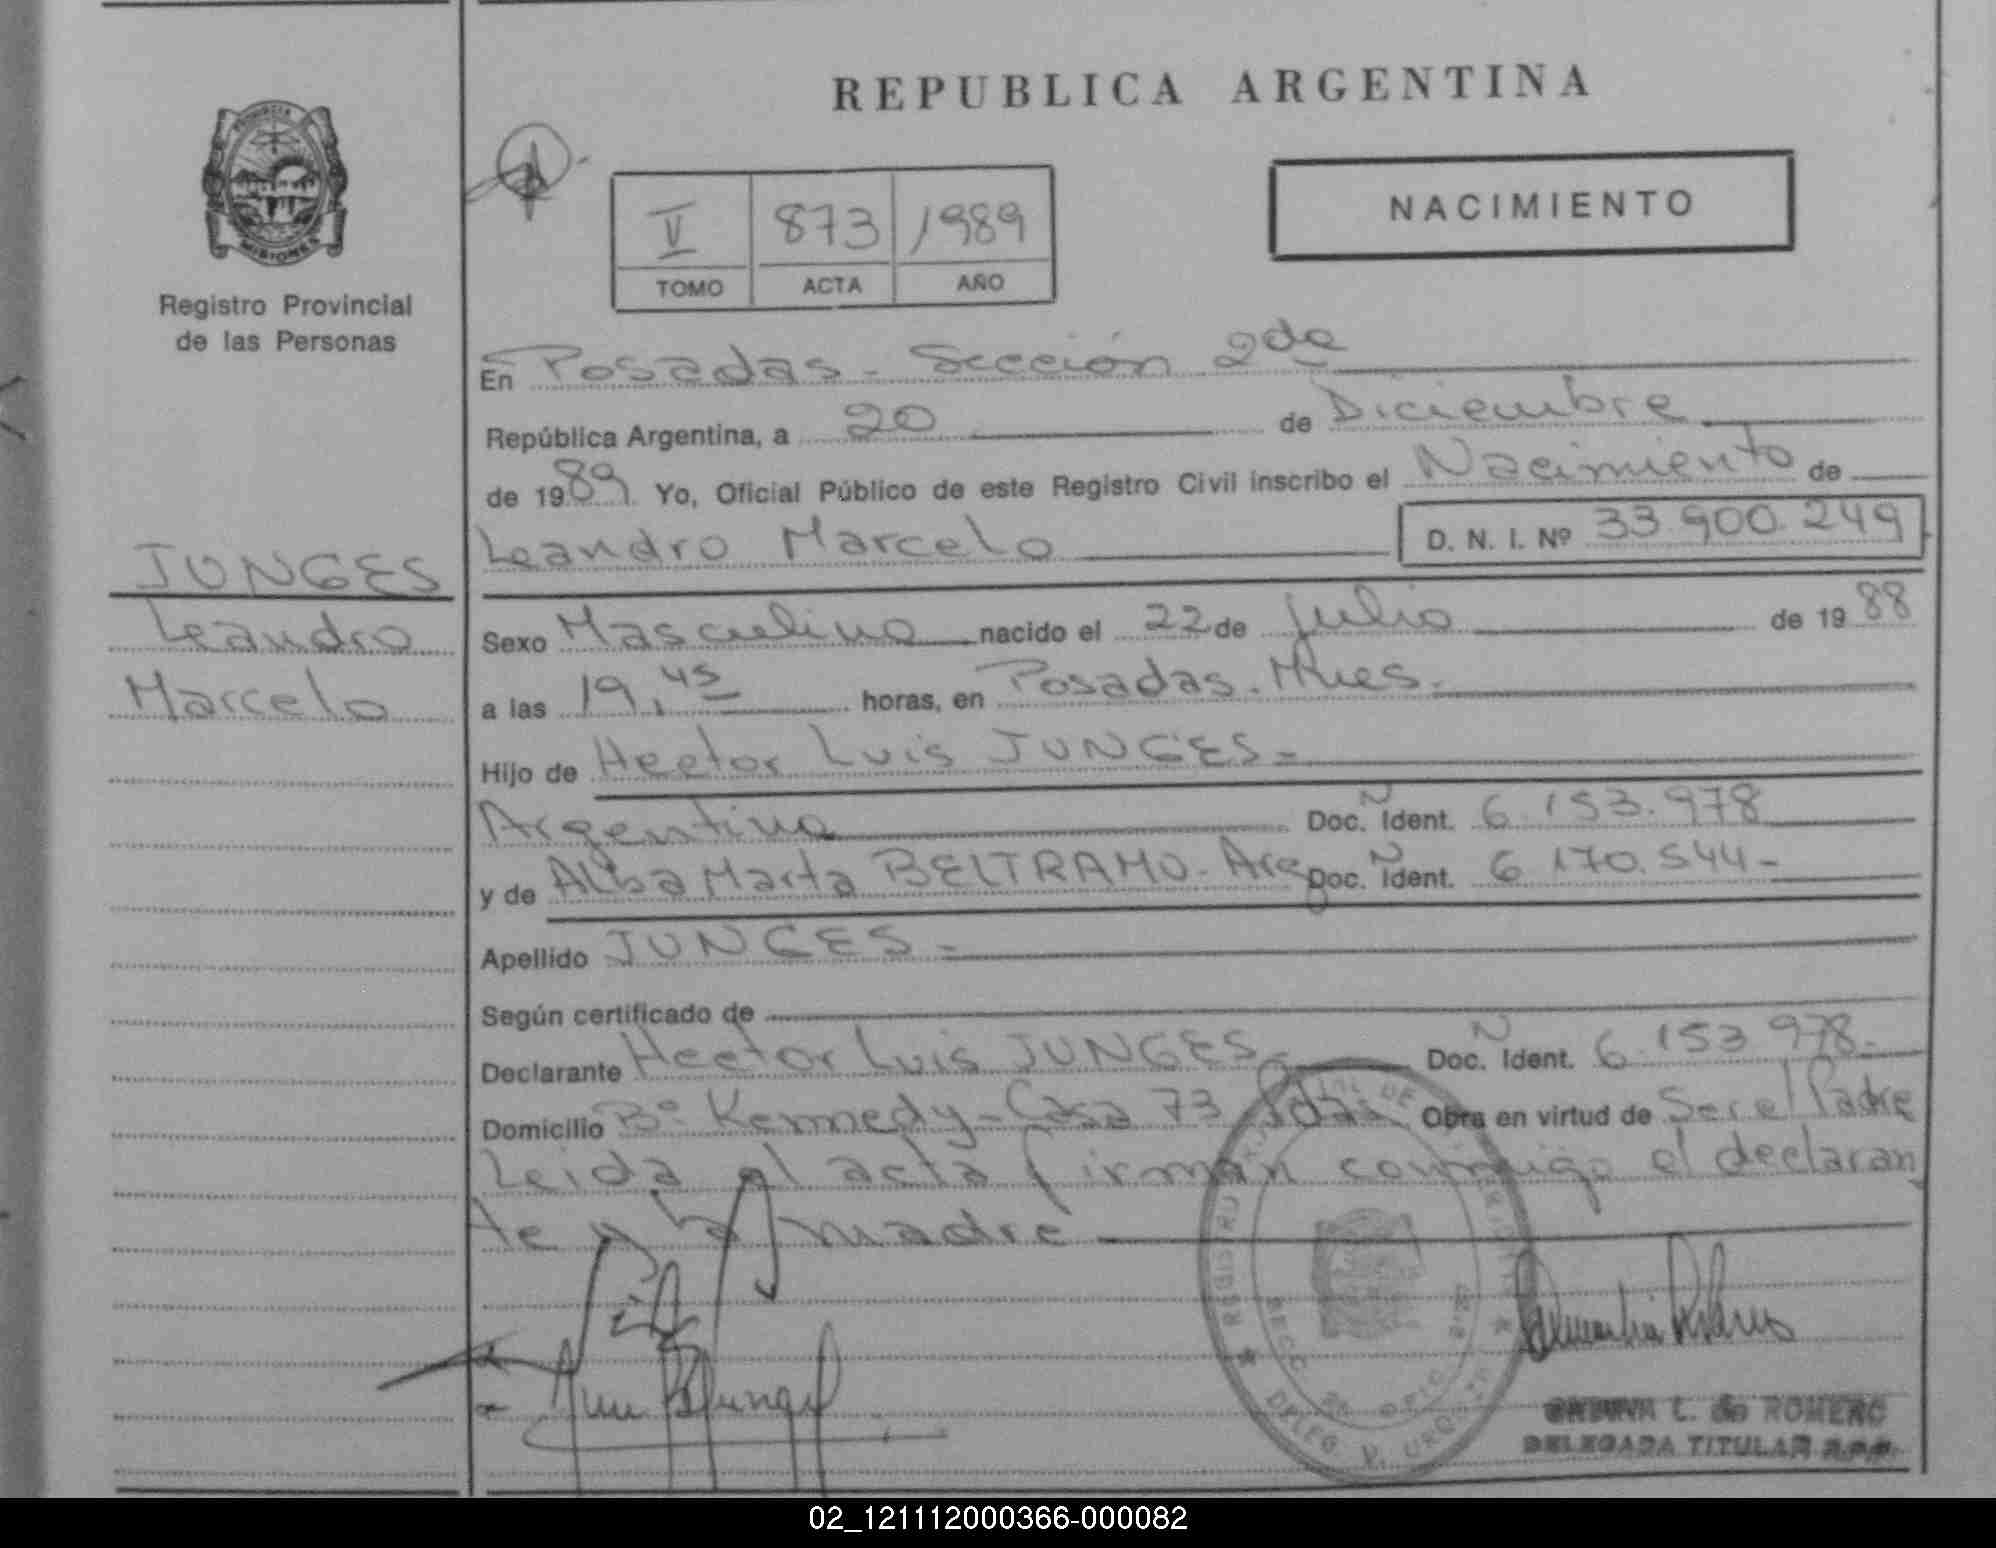 REPUBLICA ARGENTINA
PROVINCIA
MISIONES
Registro Provincial
de las Personas
V 873 1989
TOMO ACTA AÑO
NACIMIENTO
En Posadas - Sección 2da
República Argentina, a 20 de Diciembre
de 1989. Yo, Oficial Público de este Registro Civil inscribo el Nacimiento de
Leandro Marcelo D. N. I. Nº 33.900.249
JUNGES
Leandro
Marcelo
Sexo Masculino nacido el 22 de Julio de 1988
a las 19,45 horas, en Posadas. Mnes.
Hijo de Hector Luis JUNGES =
Argentino Doc. Ñ Ident. 6.153.978
y de Alba Marta BELTRAMO - Arg Doc. Ñ Ident. 6.170.544 -
Apellido JUNGES =
Según certificado de
Declarante Hector Luis JUNGES Doc. Ñ Ident. 6.153.978.
Domicilio Bº Kennedy - Casa 73 Pdas Obra en virtud de Ser el Padre
Leida el acta firman conmigo el declaran
te y la madre
DELEG
L. de ROMERO
DELEGADA TITULAR R.P.P.
02_121112000366-000082